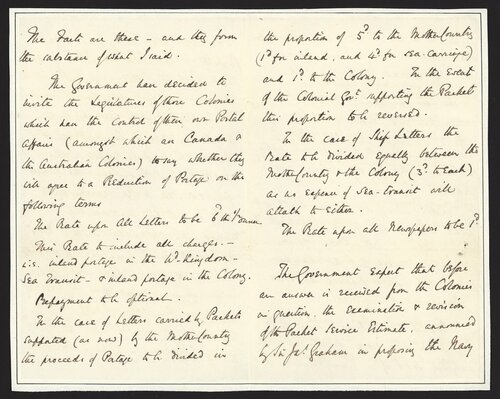 The Facts are these - and they form
the substance of what I said.
The Government have decided to
invite the Legislatures of those Colonies
which have the control of their own Postal
affairs (amongst which are Canada &
the Australian Colonies) to say whether they
will agree to a Reduction of Postage on the
following terms
The Rate upon all Letters to be 6d the ½ ounce
This Rate to include all charges. -
i.e. inland postage in the Ud. Kingdom -
Sea Transit - & inland postage in the Colony.
Prepayment to be optional.
In the case of Letters carried by Packets
supported (as now) by the Mother Country
the proceeds of Postage to be divided in
the proportion of 5d to the Mother Country
(1d for inland, and 4d for sea-carriage)
and 1d to the Colony. In the event
of the Colonial Govt supporting the Packets
this proportion to be reversed.
In the case of Ship Letters the
Rate to be divided equally between the
Mother Country & the Colony (3d to each)
as no expense of sea-transit will
attach to either.
The Rate upon all Newspapers to be 1d
The Government expect that before
an answer is received from the Colonies
in question, the examination & revision
of the Packet Service Estimate, announced
by Sir Jas. Graham in proposing the Navy